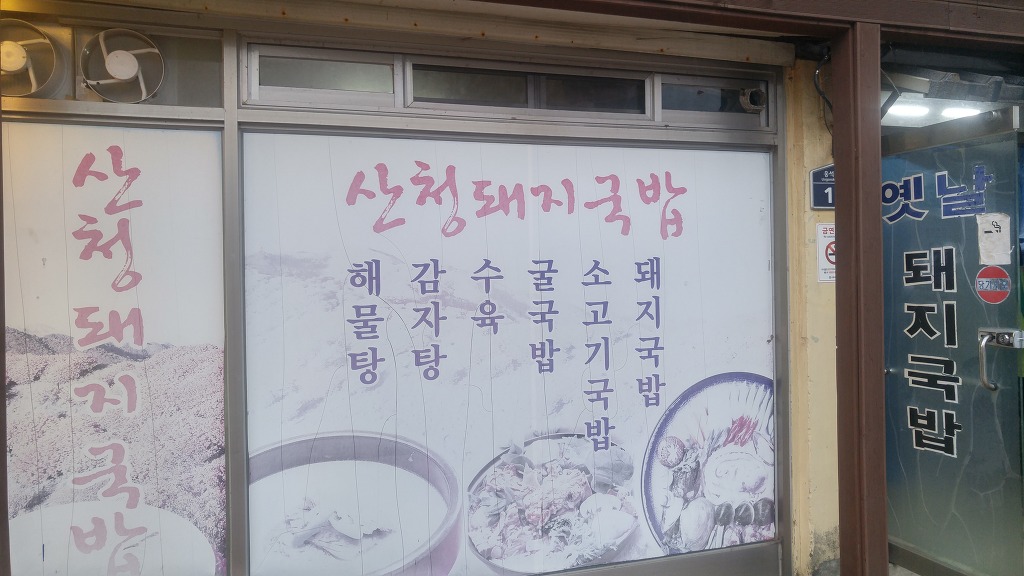 산청돼지국밥
산청돼지국밥
해물탕
감자탕
수육
굴국밥
소고기국밥
돼지국밥
옛날
돼지국밥
금연